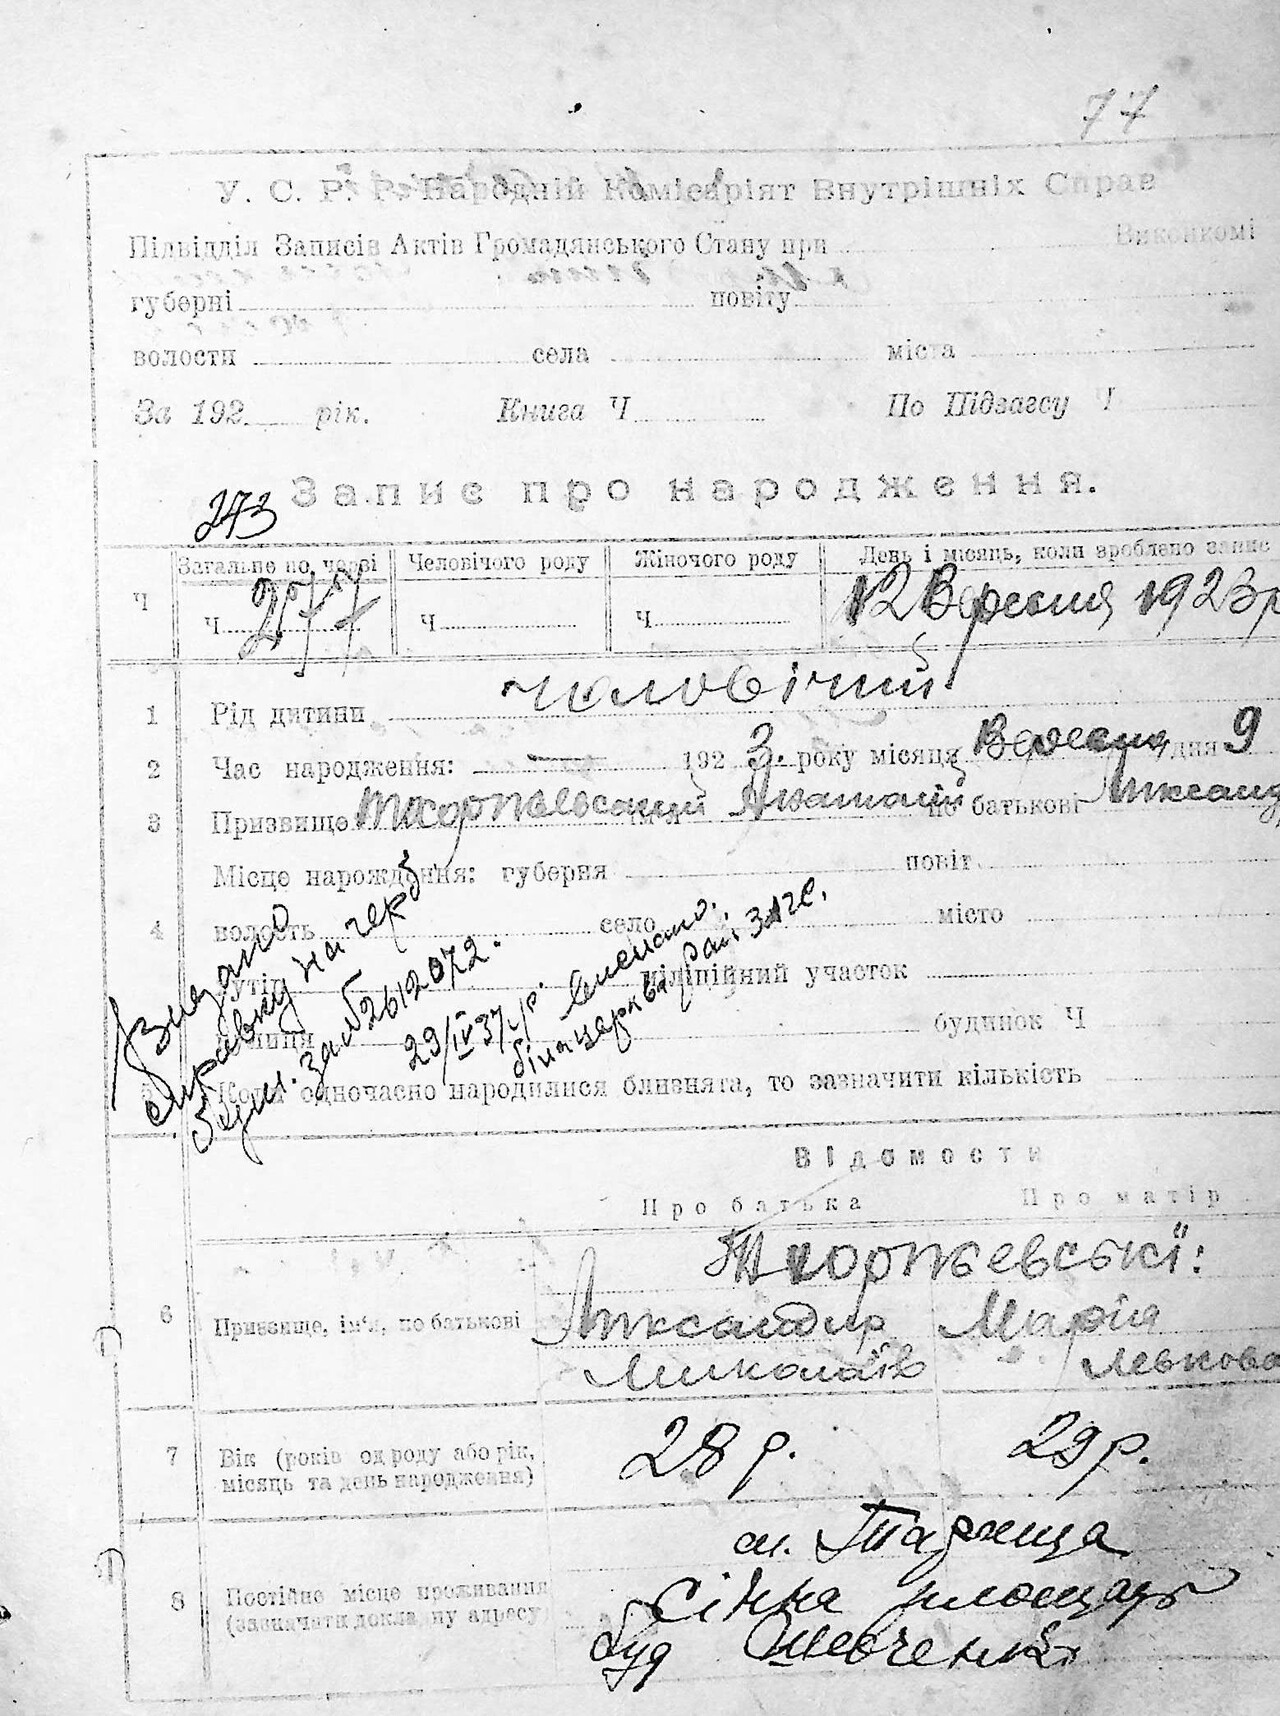 77
У. С. Р. Р. Народній Комісаріят Внутрішніх Справ
Підвідділ Записів Актів Громадянського Стану при Виконкомі
губерні повіту
волости села міста
За 192 рік. Книга Ч По Підзагсу Ч
273
Запис про народження.
Загальне по черзі Человічого роду Жіночого роду День і місяць, коли зроблено запис
Ч Ч 277 Ч Ч 12 Вересня 1923 р
1 Рід дитини чоловічий
2 Час народження: 192 3. року місяця Вересня дня 9
3 Призвище Анатолій по батькові
Місце нарождення: губерня повіт
4 волость село місто
хутір міліційний участок
будинок Ч
5 Коли одночасно народилися близнята, то зазначити кількість
Видано
справку на черв
за № 2612072.
29/IV 37 р.
біла церква рай. ЗАГС.
Відомости
Про батька Про матір
6 Призвище, ім'я, по батькові
Олександр Марія
Миколаїв Левкова
7 Вік (років од роду або рік, 28 р. 29 р.
місяць та день народження)
м. Тараща
8 Постійне місце проживання Сінна площадь
(зазначати докладну адресу) буд Шевченків